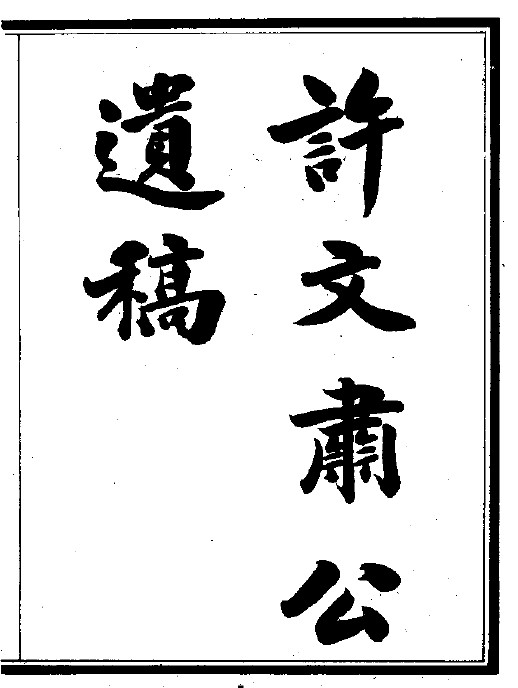 許文肅公
遺稿